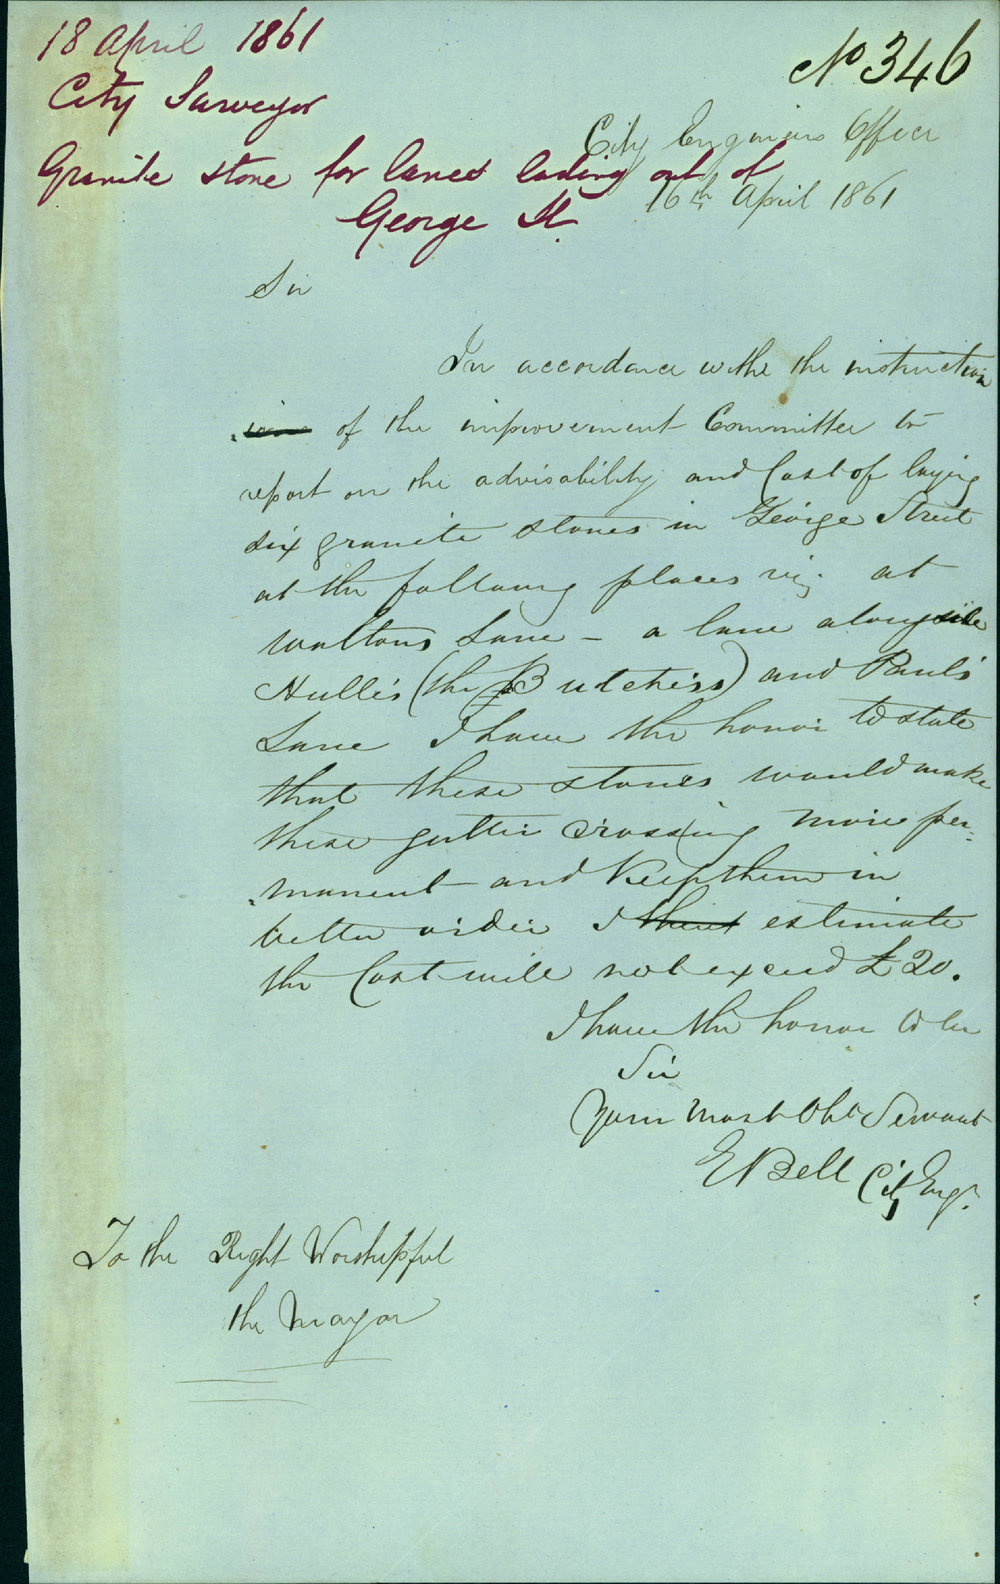 18 April 1861
No 346
City Surveyor
City Engineers Office
Granite stone for lanes leading out of
16th April 1861
George St
Sir
In accordance with the instruction
of the improvement Committee to
report on the advisability and Cost of laying
six granite stones in George Street
at the following places viz. at
Waltons Lane - a lane alongside
Hulle's (the Butchers) and Paul's
Lane I have the honor to state
that these stones would make
these gutter crossing more per=
manent and Keep them in
better order I estimate
the Cost will not exceed £20.
I have the honor to be
Sir
Your Most Obt Servant
E Bell City Engr.
To the Right Worshipful
the Mayor